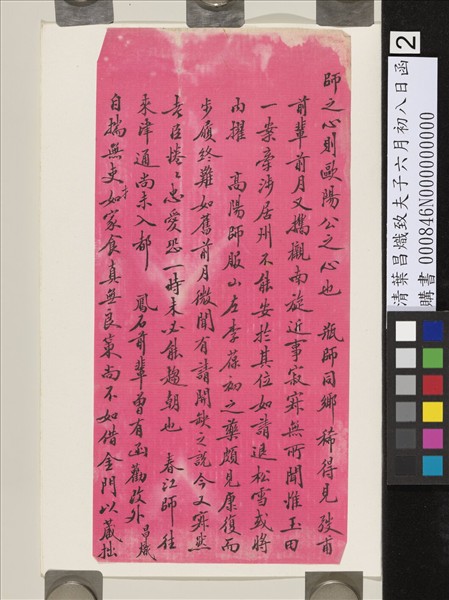 師之心則歐陽公之心也 瓶師同鄉稀得見弢甫
前輩前月又攜櫬南旋近事寂寞無所聞惟玉田
一案牽涉居州不能安於其位如請進松雪或將
內擢 高陽師服山左李葆如之藥頗見康復而
步履終難如舊前月微聞有請開缺之說今又寂然
老臣惓惓忠愛恐一時未必能趨朝也 春江師往
來津通尚未入都 鳳石前輩曾有函勸改外 昌熾
自揣無吏才如家食真無良策尚不如借金門以藏拙
2
清葉昌熾致夫子六月初八日函
購書 000846N000000000